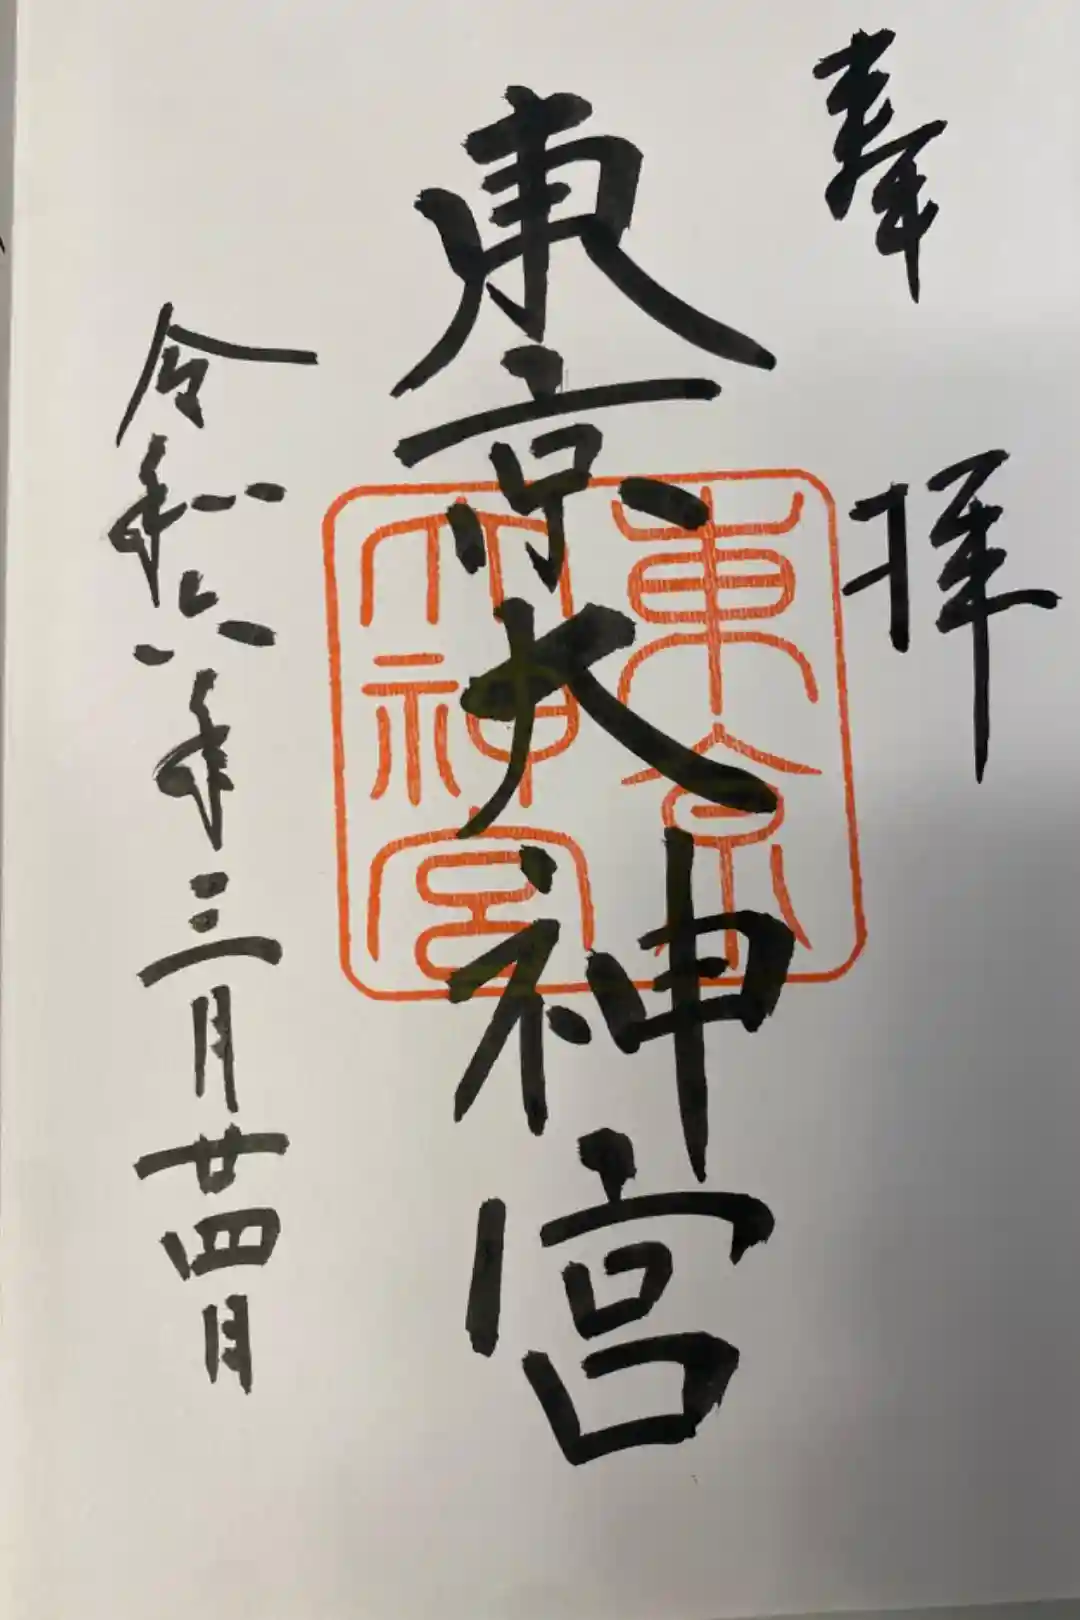 奉拝
東京大神宮
東京
大神宮
令和六年三月廿四日